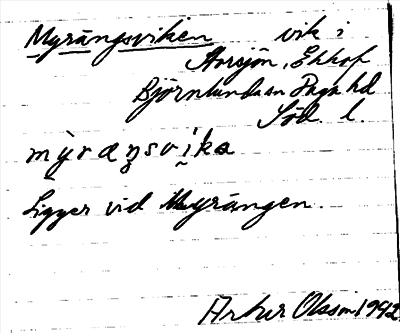 Myrängsviken vik i
Storsjön, Ekhof
Björnlunda sn Daga hd
Söd. l.
mỳraŋsvi̬ka
Ligger vid Myrängen.
Artur Olsson 1942